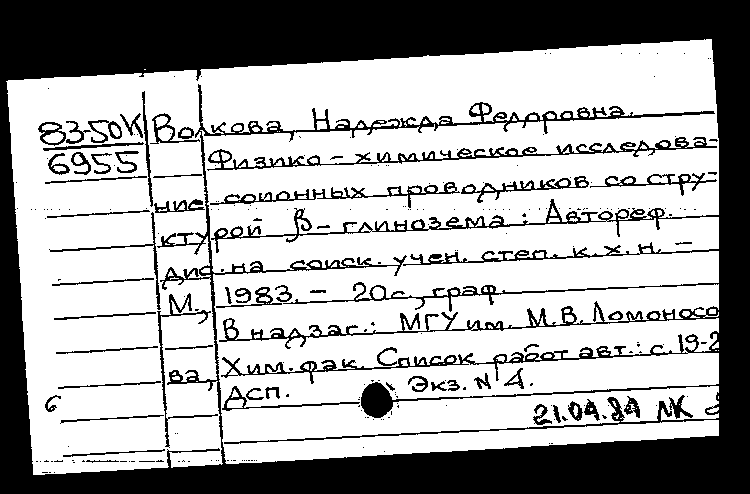 83-50К Волкова, Надежда Федоровна.
6955 Физико-химическое исследова-
ние соионных проводников со стру-
ктурой β-глинозема: Автореф.
дис. на соиск. учен. степ. к.х.н. -
М., 1983. - 20с., граф.
В надзаг.: МГУ им. М.В. Ломоносо
ва, Хим. фак. Список работ авт.: с. 19-2
Дсп. Экз. N 4.
6
21.04.84